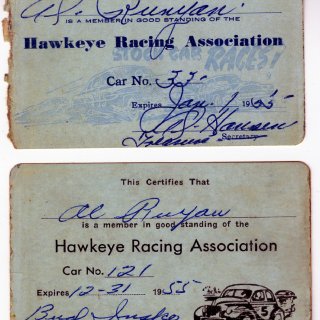 Al Runyan
IS A MEMBER IN GOOD STANDING OF THE
Hawkeye Racing Association
STOCK CAR
RACES!
Car No. 55
Expires Jan. 1 1955
Hansen
Treasurer Secretary
This Certifies That
Al Runyan
is a member in good standing of the
Hawkeye Racing Association
Car No. 121
Expires 12-31 1955
5
Bud